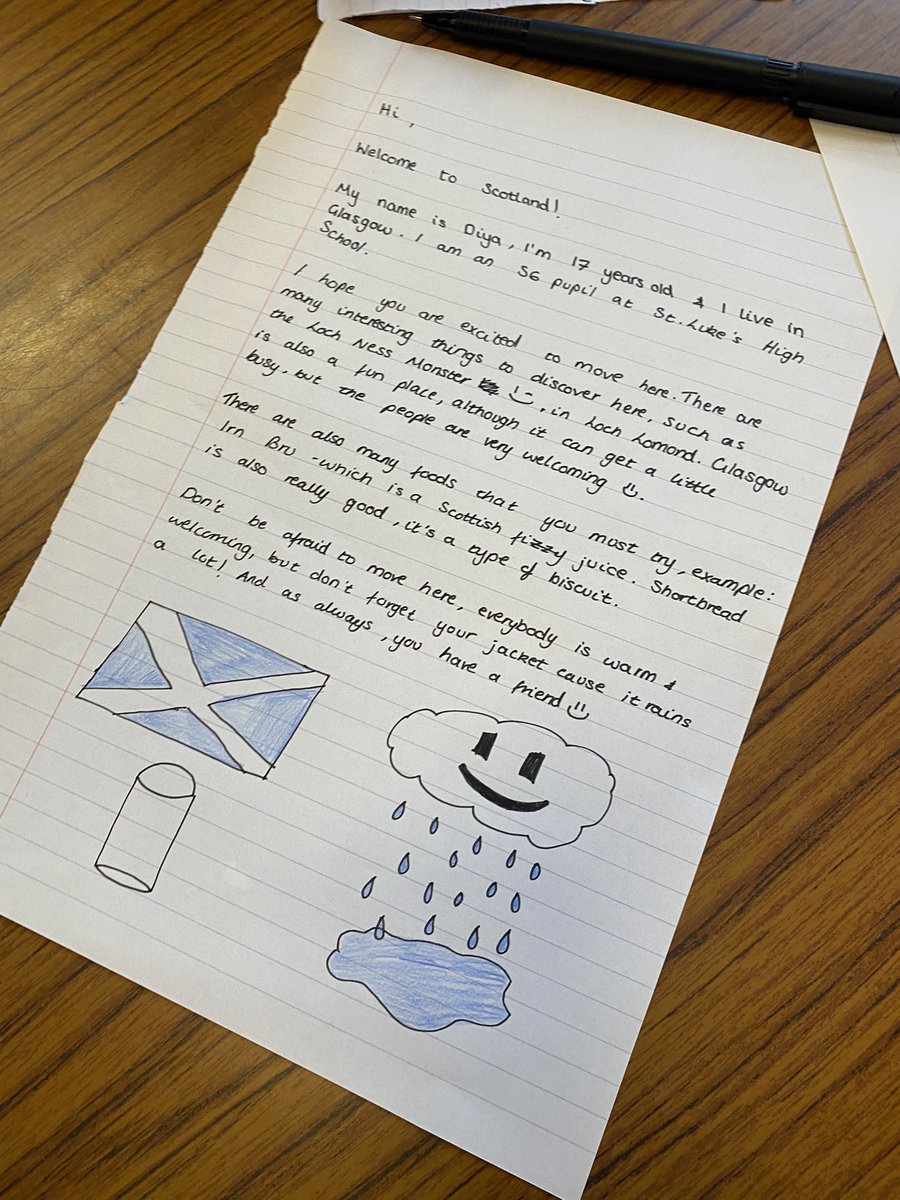 Hi,
Welcome to Scotland!
My name is Diya, I'm 17 years old & I live in
Glasgow. I am an S6 pupil at St. Luke's High
School.
I hope you are excited to move here. There are
many interesting things to discover here, such as
the Loch Ness Monster , in Loch Lomond. Glasgow
is also a fun place, although it can get a little
busy, but the people are very welcoming :).
There are also many foods that you must try, example:
Irn Bru - which is a Scottish fizzy juice. Shortbread
is also really good, it's a type of biscuit.
Don't be afraid to move here, everybody is warm &
welcoming, but don't forget your jacket cause it rains
a lot! And as always, you have a friend :)